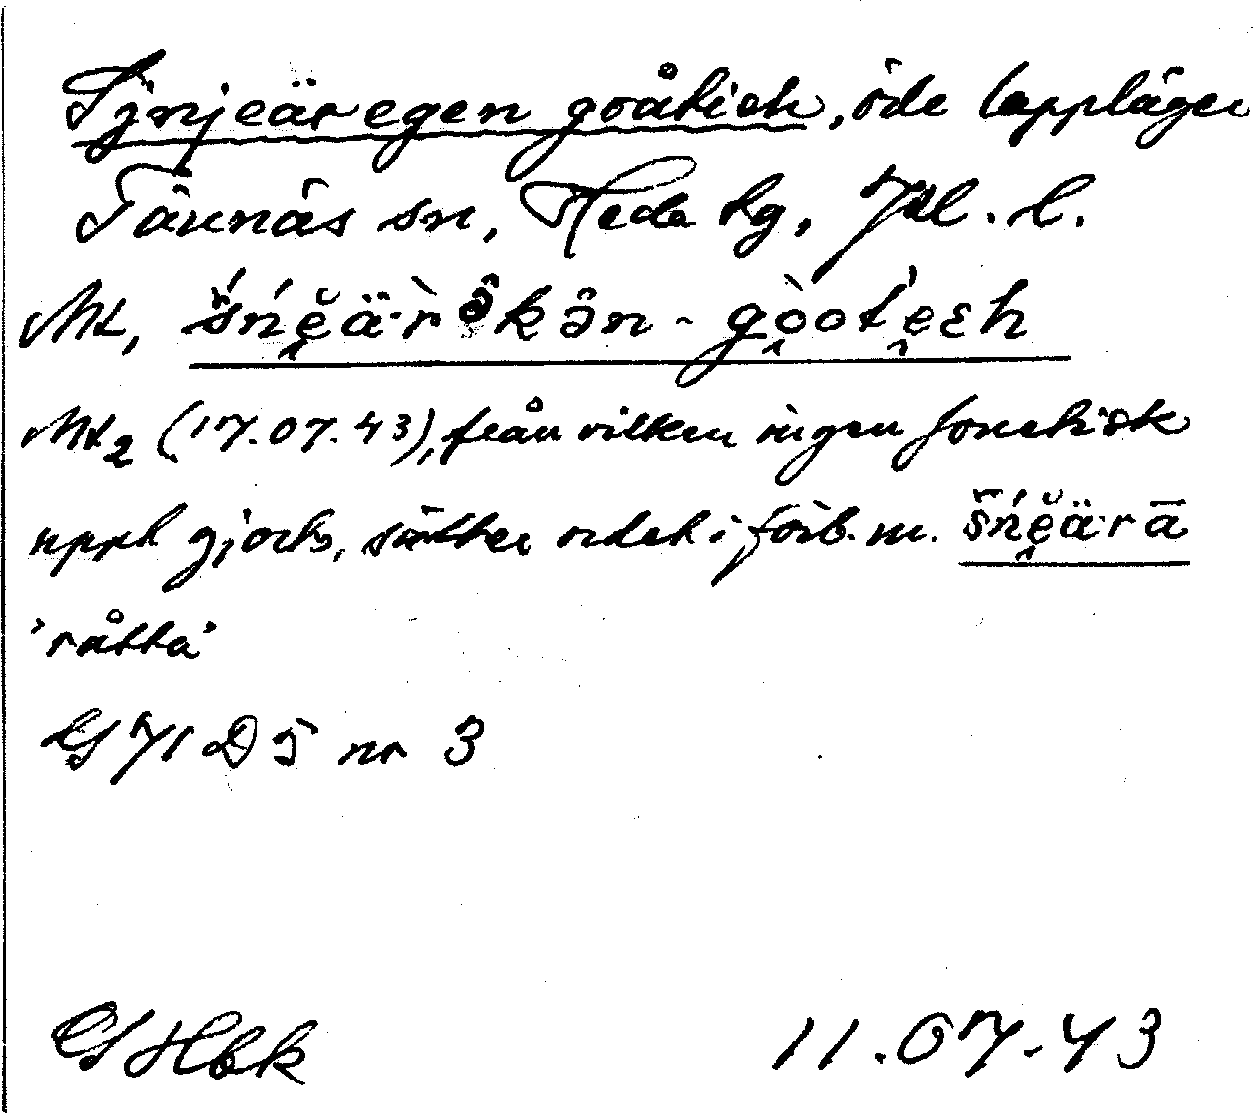 Sjnjeäregen goåtieh, öde lappläger
Tännäs sn, Heda hg, Jtl. l.
M1, šńĕärə̂kə̂n - gòot́ɛh
M2 (17.07.43), från vilken ingen fonetisk
uppt gjorts, sätter ordet i förb. m. šńĕärā
'råtta'
GS 71 D5 nr 3
GS Hbk 11.07.43